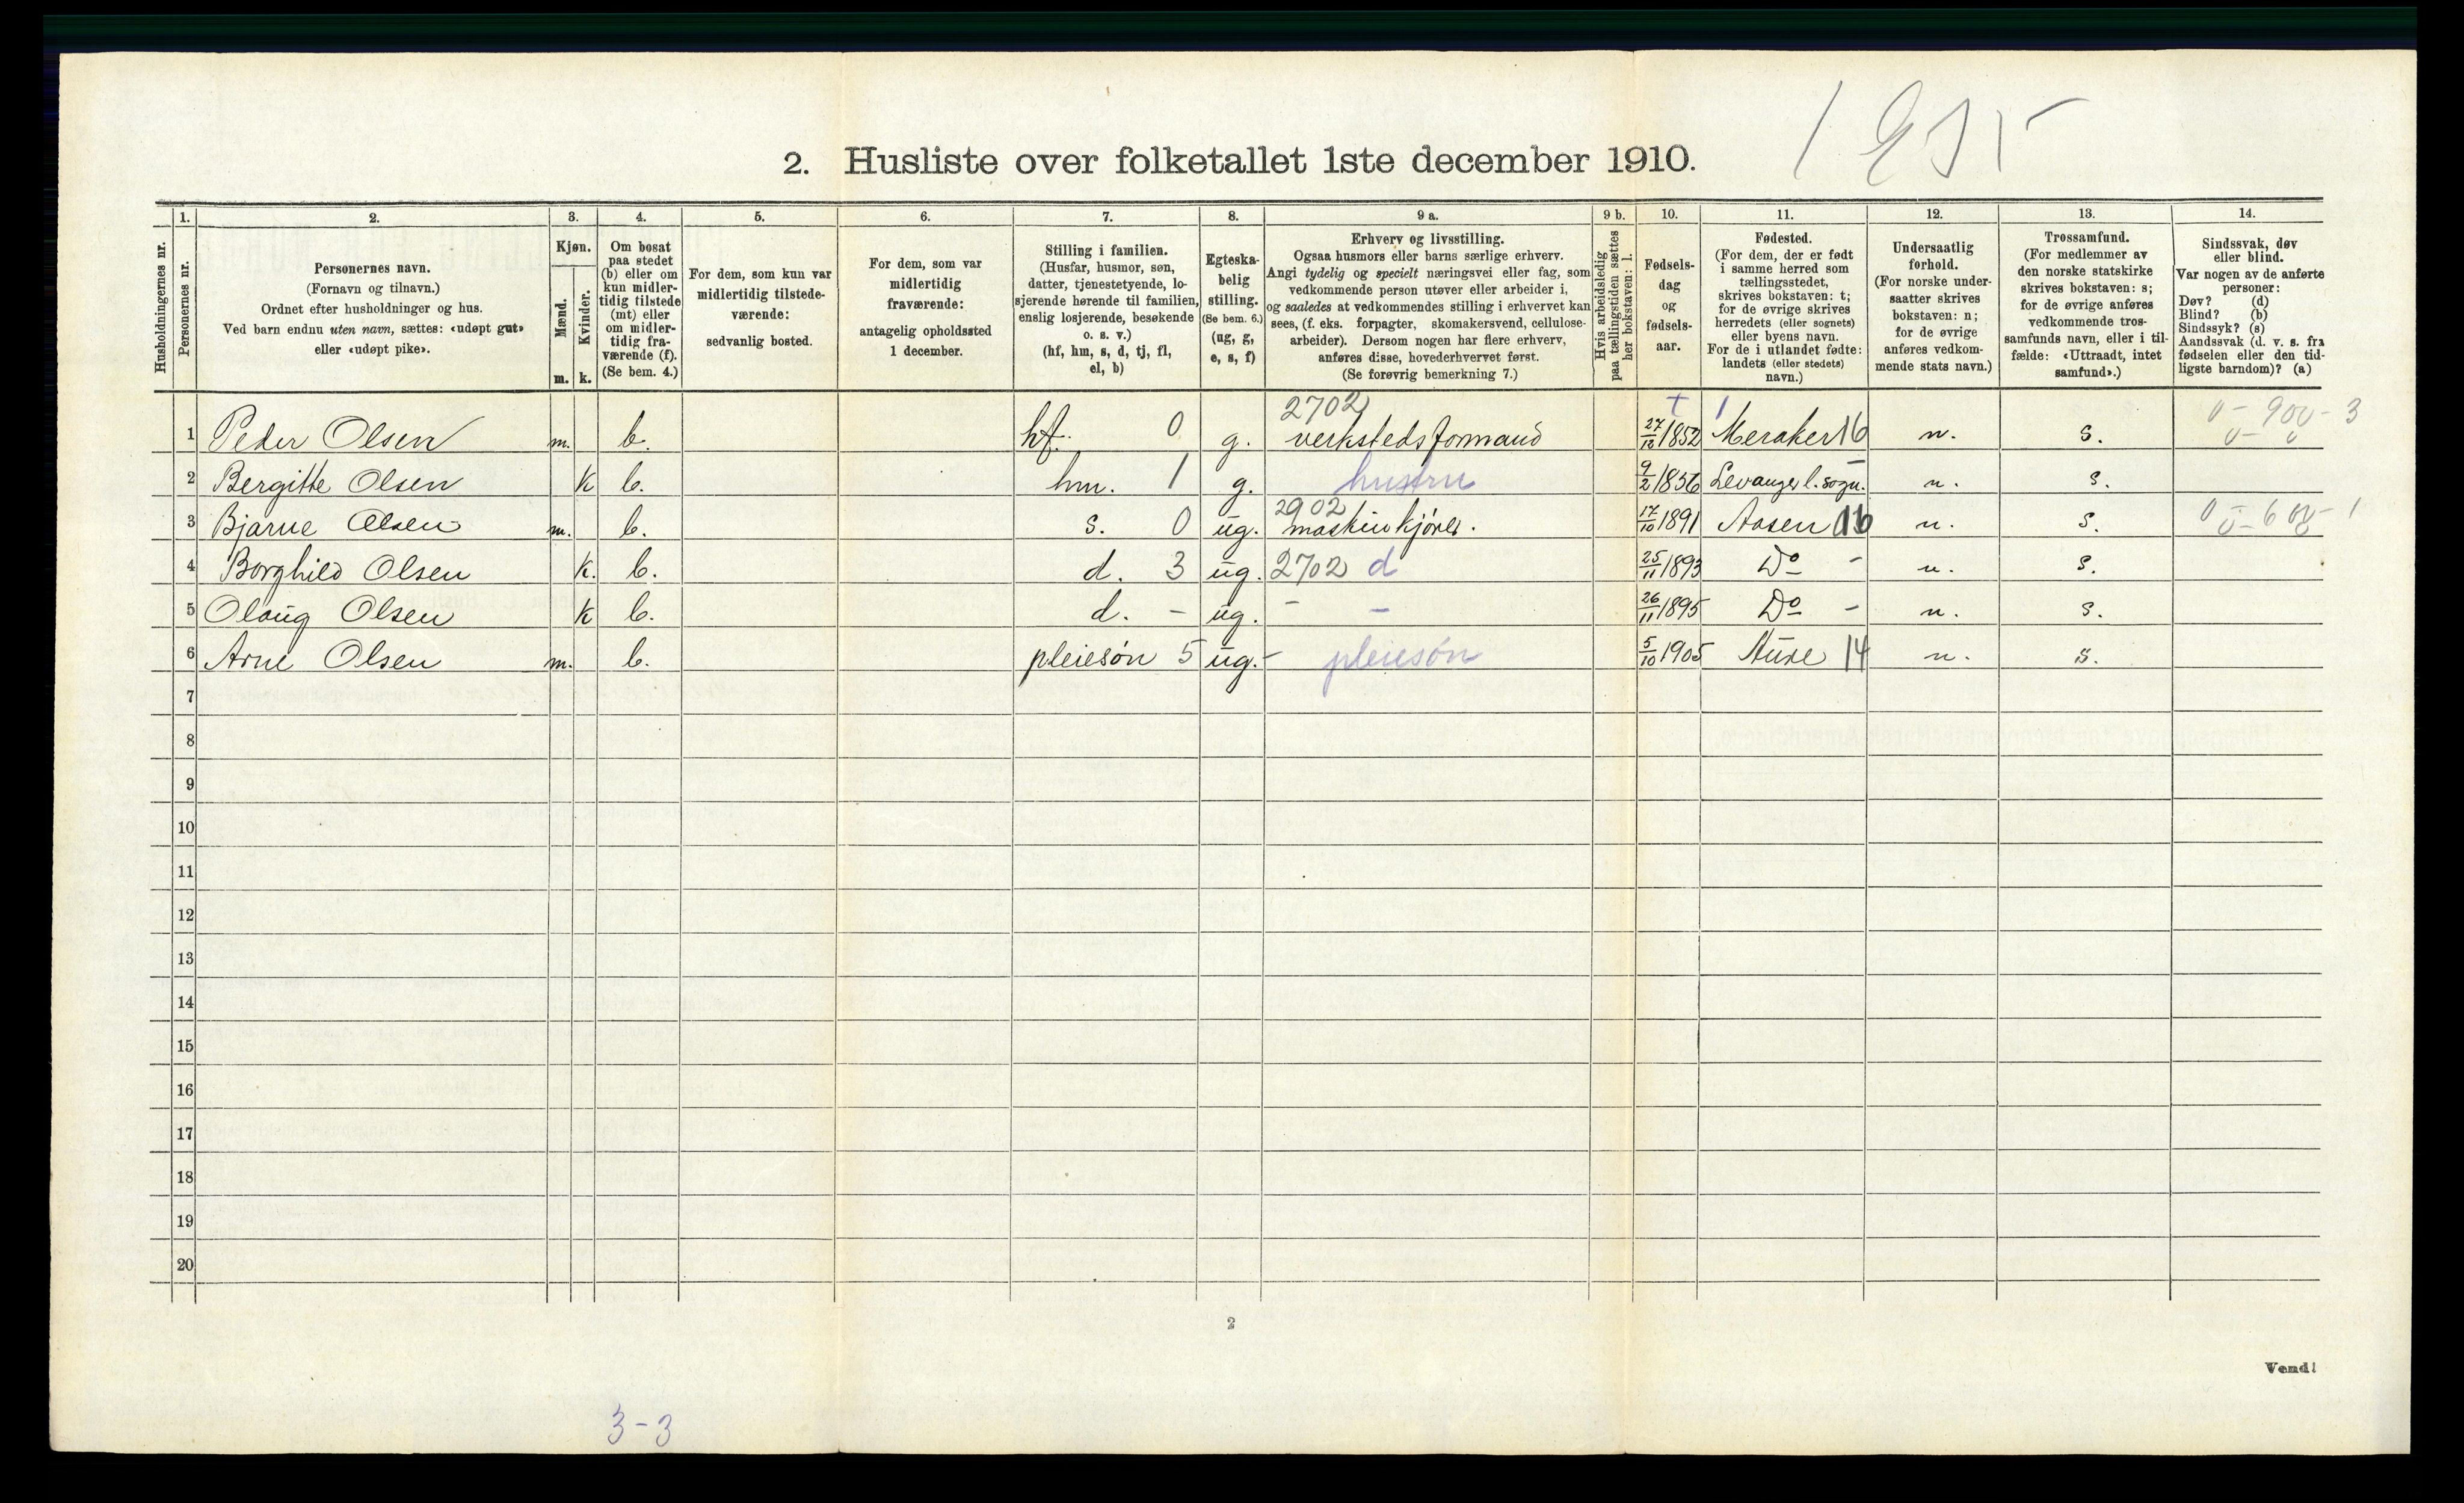 2. Husliste over folketallet 1ste december 1910.
Husholdningernes nr.
1.
Personernes nr.
2.
Personernes navn.
(Fornavn og tilnavn.)
Ordnet efter husholdninger og hus.
Ved barn endnu uten navn, sættes: «udøpt gut»
eller «udøpt pike».
3.
Kjøn.
Mænd.
Kvinder.
m. k.
4.
Om bosat
paa stedet
(b) eller om
kun midler-
tidig tilstede
(mt) eller
om midler-
tidig fra-
værende (f).
(Se bem. 4.)
5.
For dem, som kun var
midlertidig tilstede-
værende:
sedvanlig bosted.
6.
For dem, som var
midlertidig
fraværende:
antagelig opholdssted
1 december.
7.
Stilling i familien.
(Husfar, husmor, søn,
datter, tjenestetyende, lo-
sjerende hørende til familien,
enslig losjerende, besøkende
o. s. v.)
(hf, hm, s, d, tj, fl,
el, b)
8.
Egteska-
belig
stilling.
(Se bem. 6.)
(ug, g,
e, s, f)
9 a.
Erhverv og livsstilling.
Ogsaa husmors eller barns særlige erhverv.
Angi tydelig og specielt næringsvei eller fag, som
vedkommende person utøver eller arbeider i,
og saaledes at vedkommendes stilling i erhvervet kan
sees, (f. eks. forpagter, skomakersvend, cellulose-
arbeider). Dersom nogen har flere erhverv,
anføres disse, hovederhvervet først.
(Se forøvrig bemerkning 7.)
9 b.
Hvis arbeidsledig
paa tællingstiden sættes
her bokstaven: l.
10.
Fødsels-
dag
og
fødsels-
aar.
11.
Fødested.
(For dem, der er født
i samme herred som
tællingsstedet,
skrives bokstaven: t;
for de øvrige skrives
herredets (eller sognets)
eller byens navn.
For de i utlandet fødte:
landets (eller stedets)
navn.)
12.
Undersaatlig
forhold.
(For norske under-
saatter skrives
bokstaven: n;
for de øvrige
anføres vedkom-
mende stats navn.)
13.
Trossamfund.
(For medlemmer av
den norske statskirke
skrives bokstaven: s;
for de øvrige anføres
vedkommende tros-
samfunds navn, eller i til-
fælde: «Uttraadt, intet
samfund».)
14.
Sindssvak, døv
eller blind.
Var nogen av de anførte
personer:
Døv? (d)
Blind? (b)
Sindssyk? (s)
Aandssvak (d. v. s. fra
fødselen eller den tid-
ligste barndom)? (a)
2702
1 Peder Olsen m. b. hf. 0 g. verkstedsformand 27/12 1852 Meraker 16 n. s.
2 Bergitte Olsen k b. hm. 1 g. hustru 9/2 1856 Levanger l. sogn. n. s.
2902
3 Bjarne Olsen m. b. s. 0 ug. maskinkjører. 17/10 1891 Aasen 16 n. s.
4 Borghild Olsen k. b. d. 3 ug. 2702 d 25/11 1893 Do - n. s.
5 Olaug Olsen k b. d. - ug. - - 26/11 1895 Do - n. s.
6 Arne Olsen m. b. pleiesøn 5 ug. - pleiesøn 5/10 1905 Aure 14 n. s.
7
8
9
10
11
12
13
14
15
16
17
18
19
20
2
Vend!
3-3